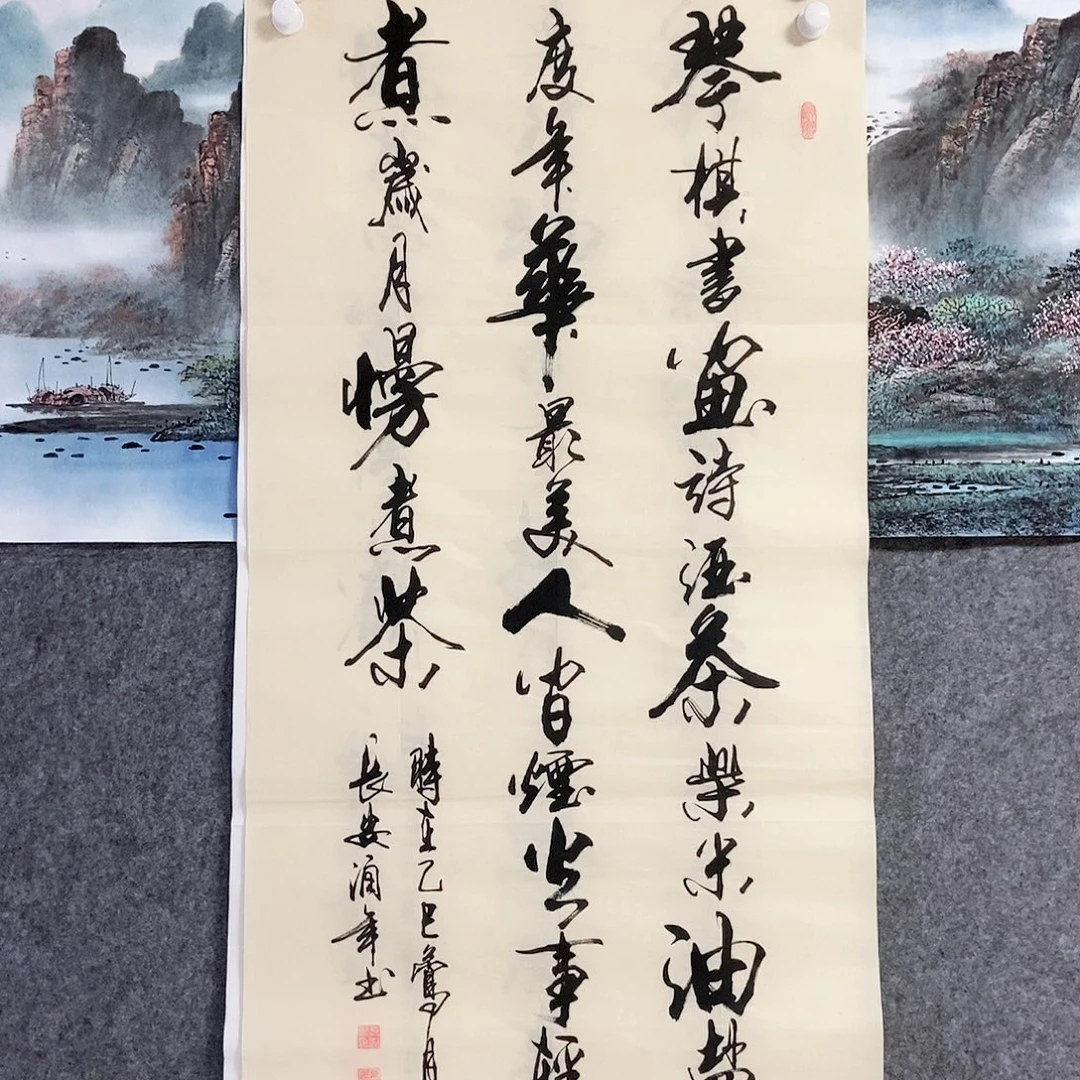 琴棋書畫詩酒茶柴米油鹽
度年華最美人間煙火事輕
煮歲月慢煮茶
時在乙巳月
長安年书